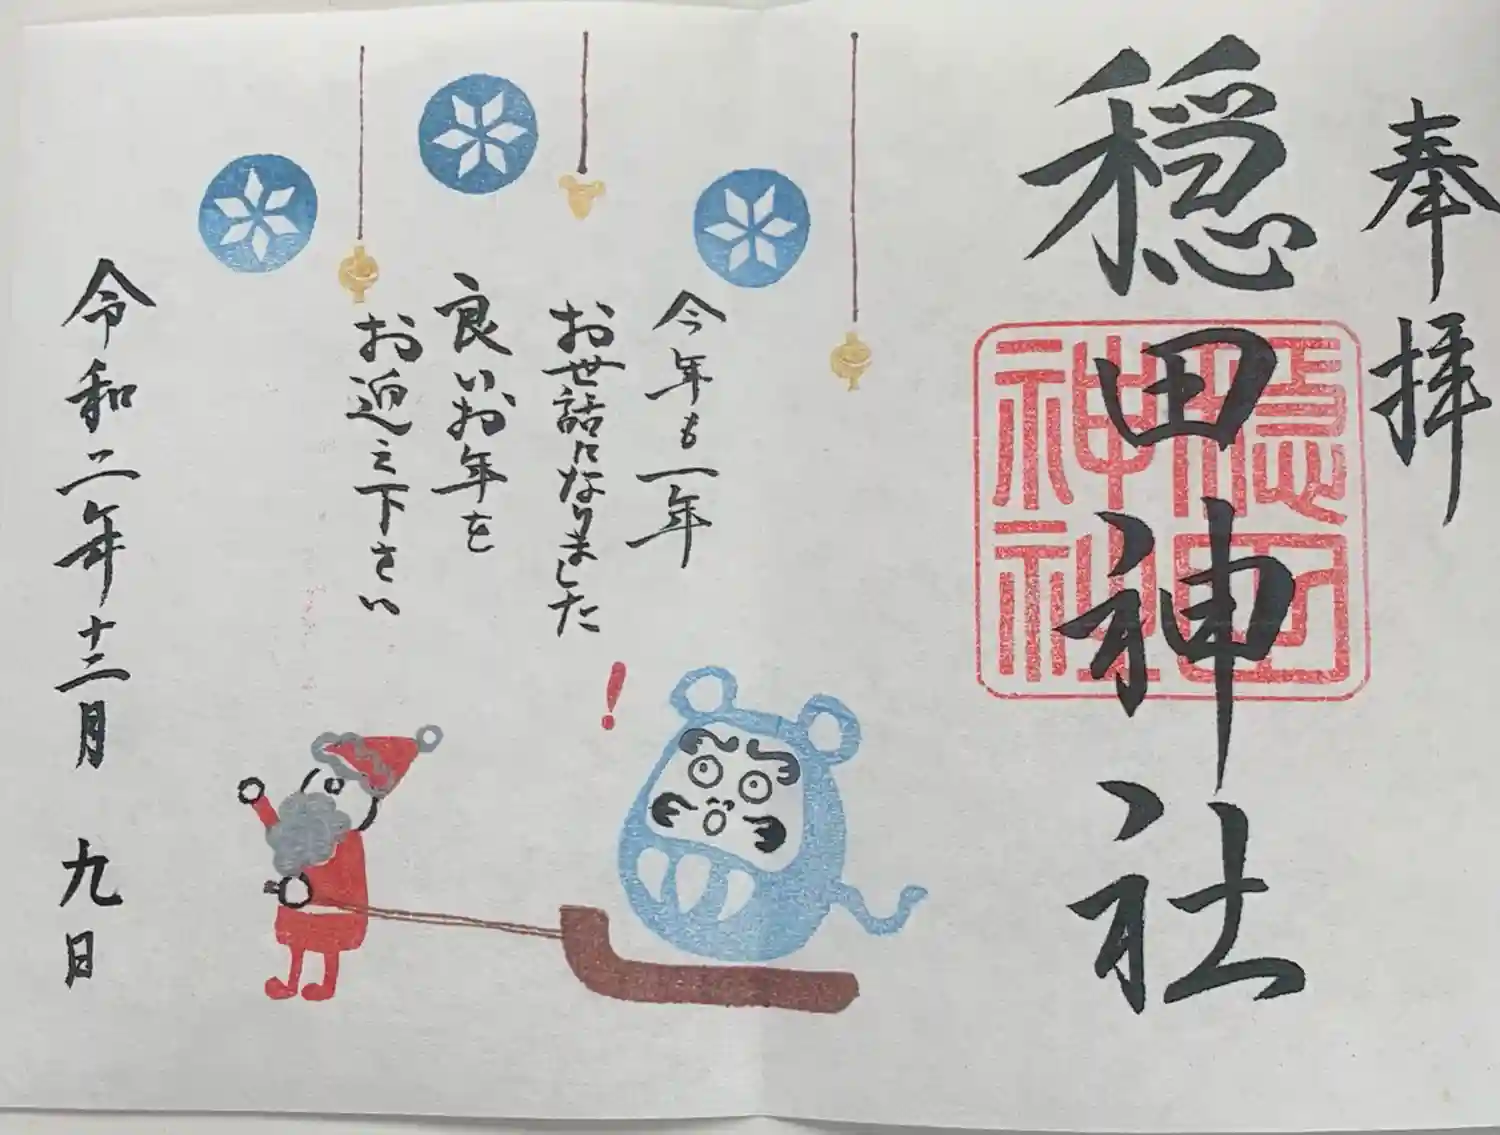 奉拝
穏田神社
穏田
神社
今年も一年
お世話になりました
良いお年を
お迎え下さい
！
令和二年十二月九日